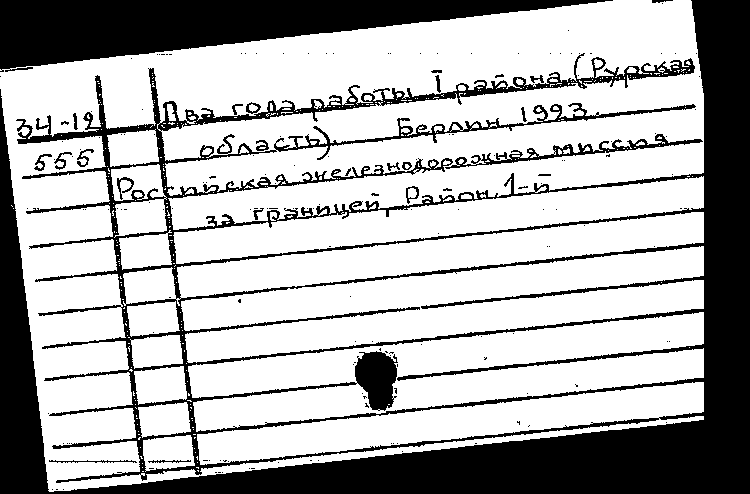 34-12 Два года работы I района (Рурская
555 область). Берлин, 1923.
Российская железнодорожная миссия
за границей, Район 1-й